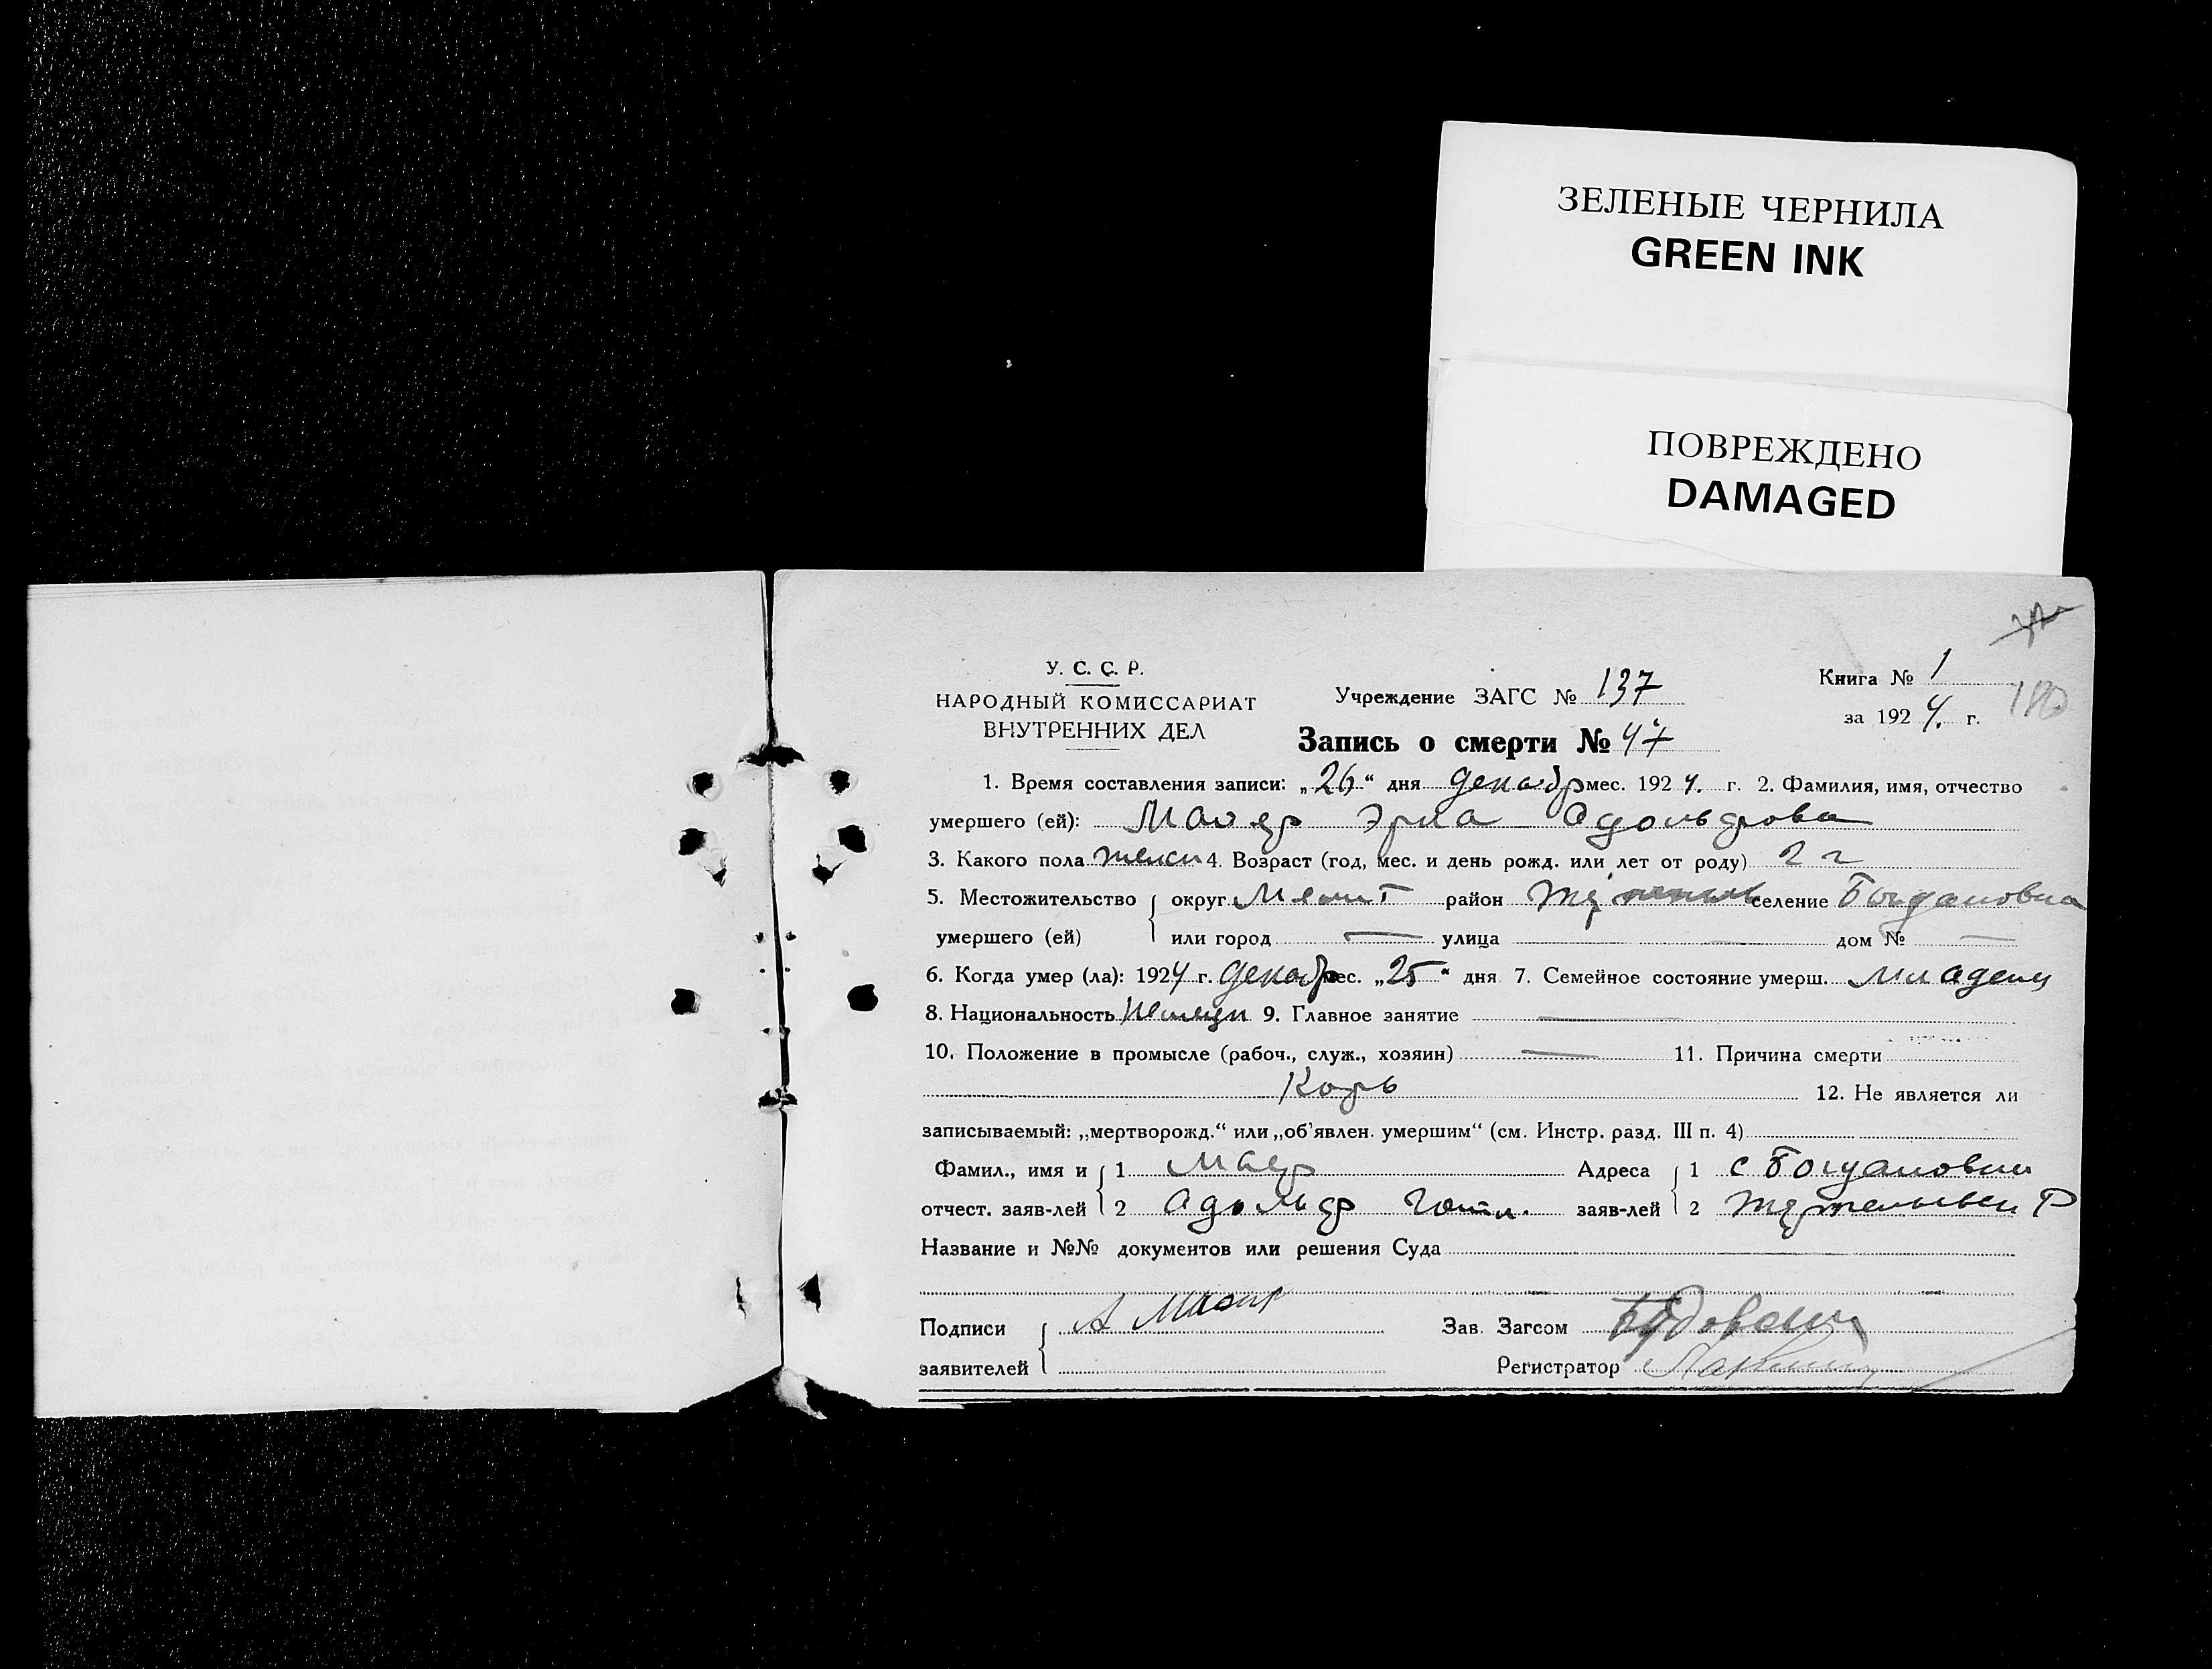 ЗЕЛЕНЫЕ ЧЕРНИЛА
GREEN INK
ПОВРЕЖДЕНО
DAMAGED
У. С. С. Р.
НАРОДНЫЙ КОМИССАРИАТ
ВНУТРЕННИХ ДЕЛ
Учреждение ЗАГС № 137
Книга № 1
за 1924. г.
180
Запись о смерти № 47
1. Время составления записи: „26“ дня декабр мес. 1924. г. 2. Фамилия, имя, отчество
умершего (ей): Эрна Адольфова
3. Какого пола женск 4. Возраст (год, мес. и день рожд. или лет от роду) 2 г
5. Местожительство округ район селение Богдановка
умершего (ей) или город — улица — дом № —
6. Когда умер (ла): 1924 г. декабр мес. „25“ дня 7. Семейное состояние умерш. младенц
8. Национальность Немцы 9. Главное занятие —
10. Положение в промысле (рабоч., служ., хозяин) — 11. Причина смерти
Корь 12. Не является ли
записываемый: „мертворожд.“ или „об'явлен. умершим“ (см. Инстр. разд. III п. 4)
Фамил., имя и 1 Маер Адреса 1 с Богдановки
отчест. заяв-лей 2 Адольф заяв-лей 2 Р
Название и №№ документов или решения Суда
Подписи А Зав. Загсом
заявителей Регистратор